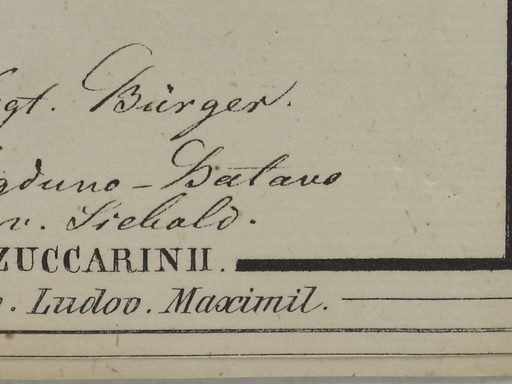 gt. Bürger.
gduno-Batavo
v. Siebold.
ZUCCARINII.
. Ludov. Maximil.